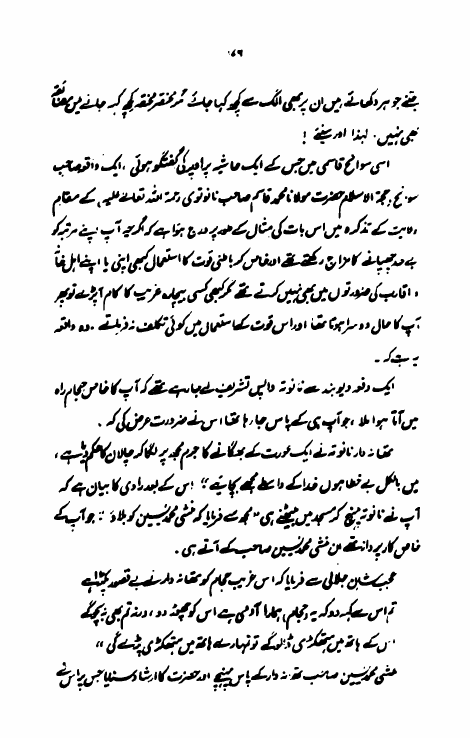 ۷۶
جتنے جوہر دکھاتے ہیں ان پر بھی الگ سے کچھ کہا جائے مگر مختصر مختصر کچھ کہہ جانے میں
بھی نہیں. لہذا اور سنیئے !
اسی سوانح قاسمی میں جس کے ایک حاشیہ پر اوپر کی گفتگو ہوئی، ایک واقعہ صاحب
سوانح، حجۃ الاسلام حضرت مولانا محمد قاسم صاحب نانوتوی رحمۃ اللہ تعالے علیہ، کے مقام
ولایت کے تذکرہ میں اس بات کی مثال کے طور پر درج ہوا ہے کہ اگرچہ آپ اپنے مرتبہ کو
بے حد چھپانے کا مزاج رکھتے تھے اور خاص کر باطنی قوت کا استعمال کبھی اپنی یا اپنے اہل
و اقارب کی ضرورتوں میں بھی نہیں کرتے تھے مگر کبھی کسی بیچارہ غریب کا کام آپڑے تو پھر
آپ کا حال دوسرا ہوتا تھا اور اس قوت کے استعمال میں کوئی تکلف نہ فرماتے. وہ واقعہ
یہ ہے کہ.
ایک دفعہ دیوبند سے نانوتہ واپس تشریف لے جا رہے تھے کہ آپ کا خاص حجام راہ
میں آتا ہوا ملا، جو آپ ہی کے پاس جا رہا تھا اس نے ضرورت عرض کی کہ.
تھانہ دار نانوتہ نے ایک عورت کے بھگانے کا جرم مجھ پر لگا کر چالان کا حکم دیا ہے،
میں بالکل بے خطا ہوں خدا کے واسطے مجھے بچائیے" اس کے بعد راوی کا بیان ہے کہ
آپ نے نانوتہ پہنچ کر مسجد میں بیٹھتے ہی "مجھ سے فرمایا کہ منشی محمد یٰسین کو بلاؤ" جو آپ کے
خاص کارپرداز تھے ان منشی محمد یٰسین صاحب کے آتے ہی.
عجب شان جلالی سے فرمایا کہ اس غریب حجام کو تھانہ دار نے بے قصور پکڑا ہے
تم اس سے کہہ دو کہ یہ (حجام) ہمارا آدمی ہے اس کو چھوڑ دو، ورنہ تم بھی نہ بچو گے
اس کے ہاتھ میں ہتھکڑی ڈالو گے تو تمہارے ہاتھ میں ہتھکڑی پڑے گی"
منشی محمد یٰسین صاحب تھانہ دار کے پاس پہنچے اور حضرت کا ارشاد سنایا جس پر اس نے